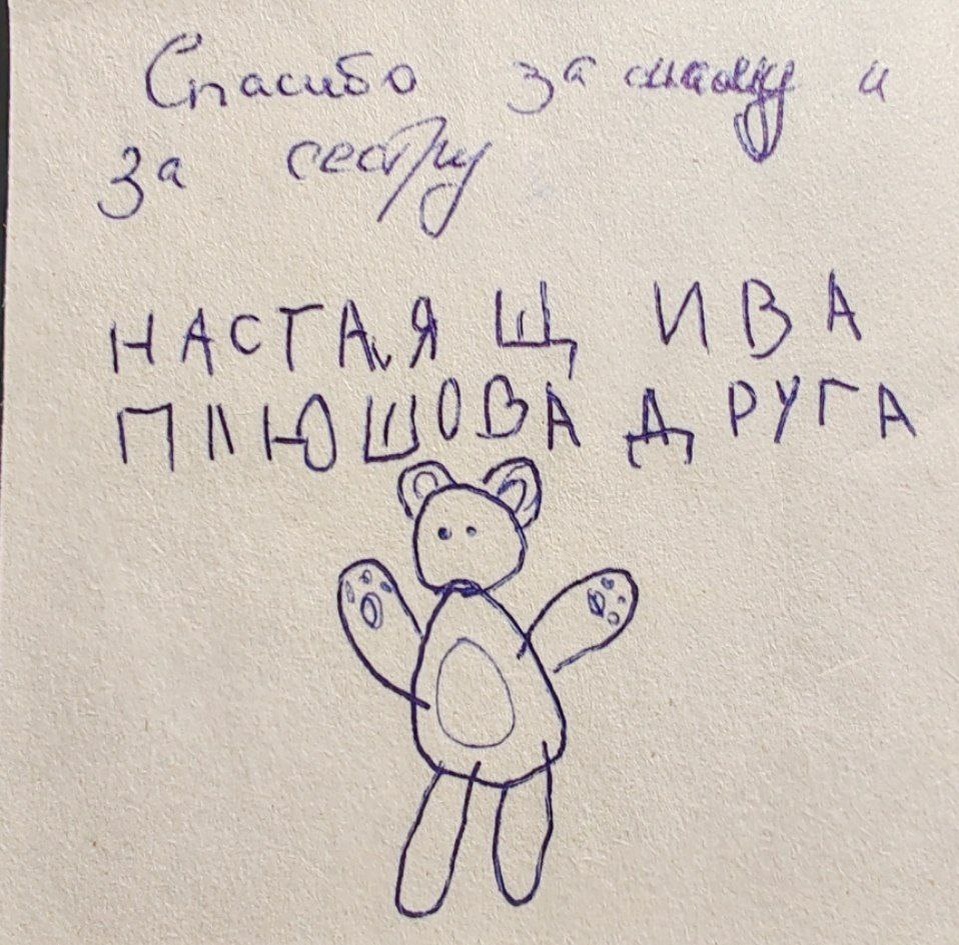 Спасибо за маму и
за сестру
НАСТАЯЩИВА
ПЛЮШОВА ДРУГА